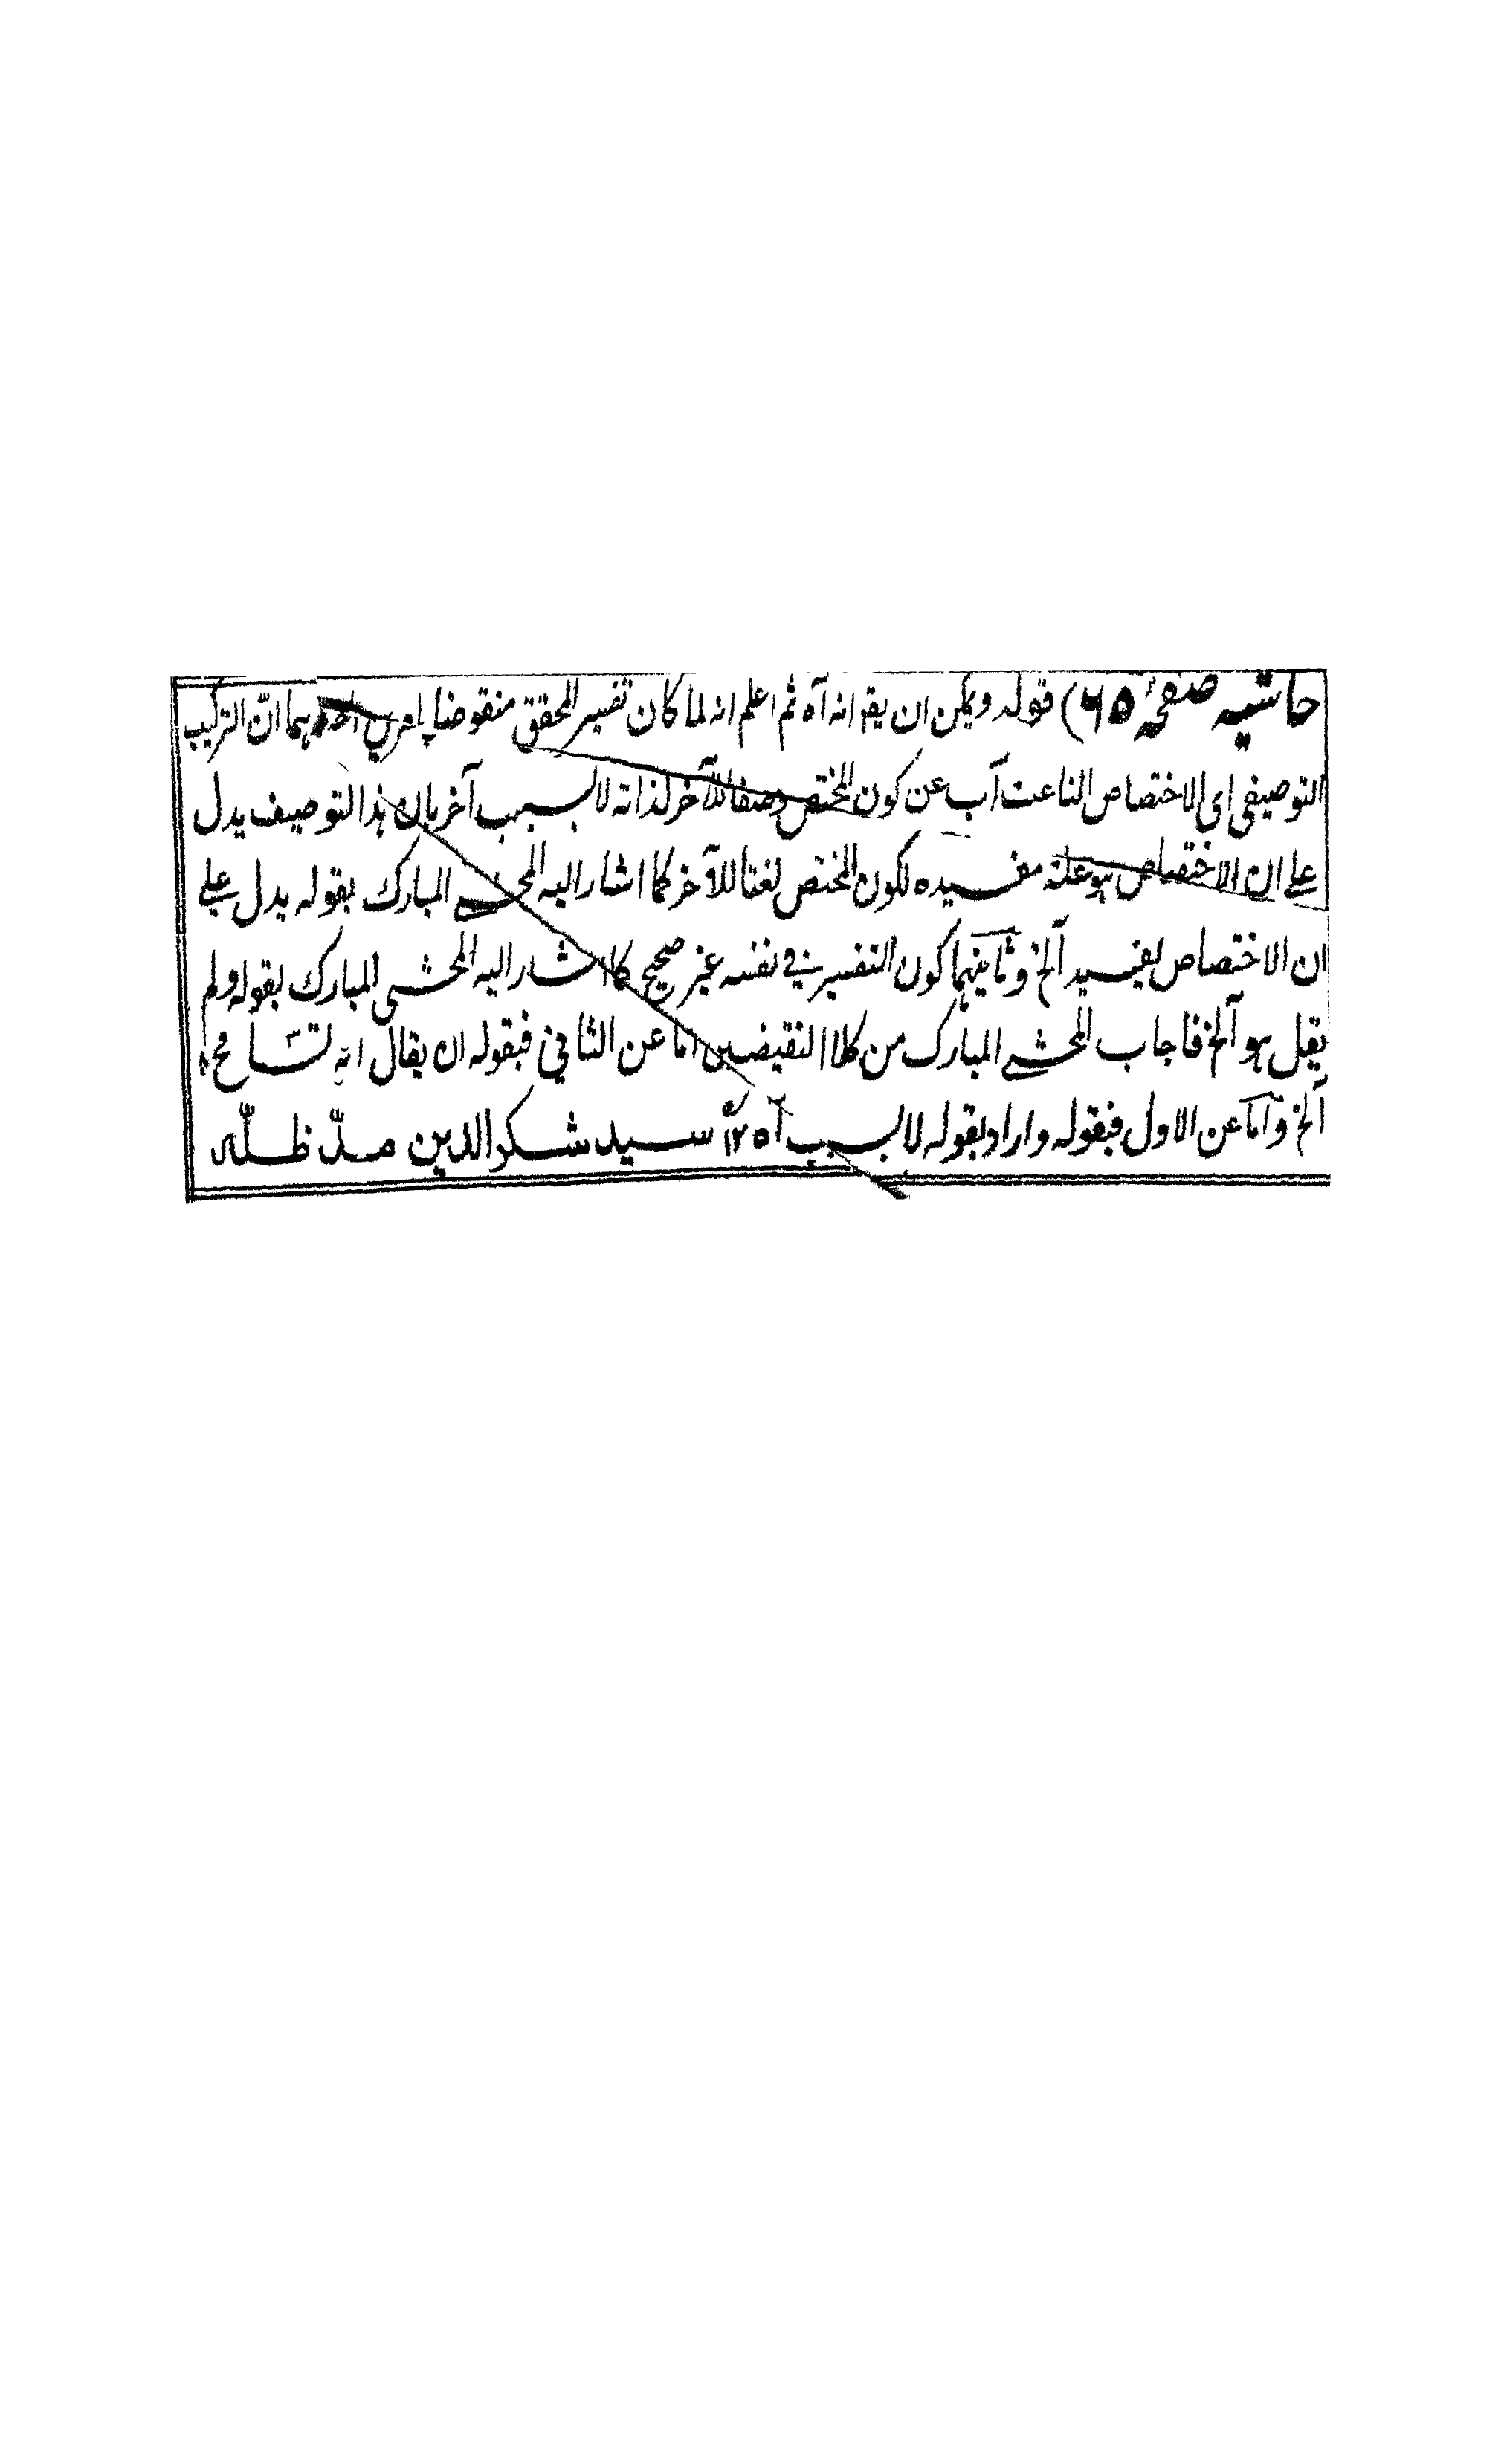 حاشیہ صفحۂ ۶۵) قولہ ویمکن ان یقو انہ آہ ثم اعلم انہ لما کان تفسیر المحقق منقوضا بامرین احدہما انّ الترکیب
التوصیفی ای الاختصاص الناعت آب عن کون المختص وصفا للآخر لذاتہ لا لسبب آخر بان ہذا التوصیف یدل
علی ان الاختصاص ہو علۃ مفیدہ لکون المختص نعتا للآخر کما اشار الیہ المحشی المبارک بقولہ یدل علی
ان الاختصاص یفید آلخ وثانیہما کون التفسیر فی نفسہ غیر صحیح کما اشار الیہ المحشی المبارک بقولہ ولم
یقل ہو آلخ فاجاب المحشی المبارک من کلا النقیضین اما عن الثانی فبقولہ ان یقال انہ تسامح
آلخ واما عن الاول فبقولہ واراد بقولہ لا لسبب آہ ۱۲ سید شکر الدین مدّ ظلّہ